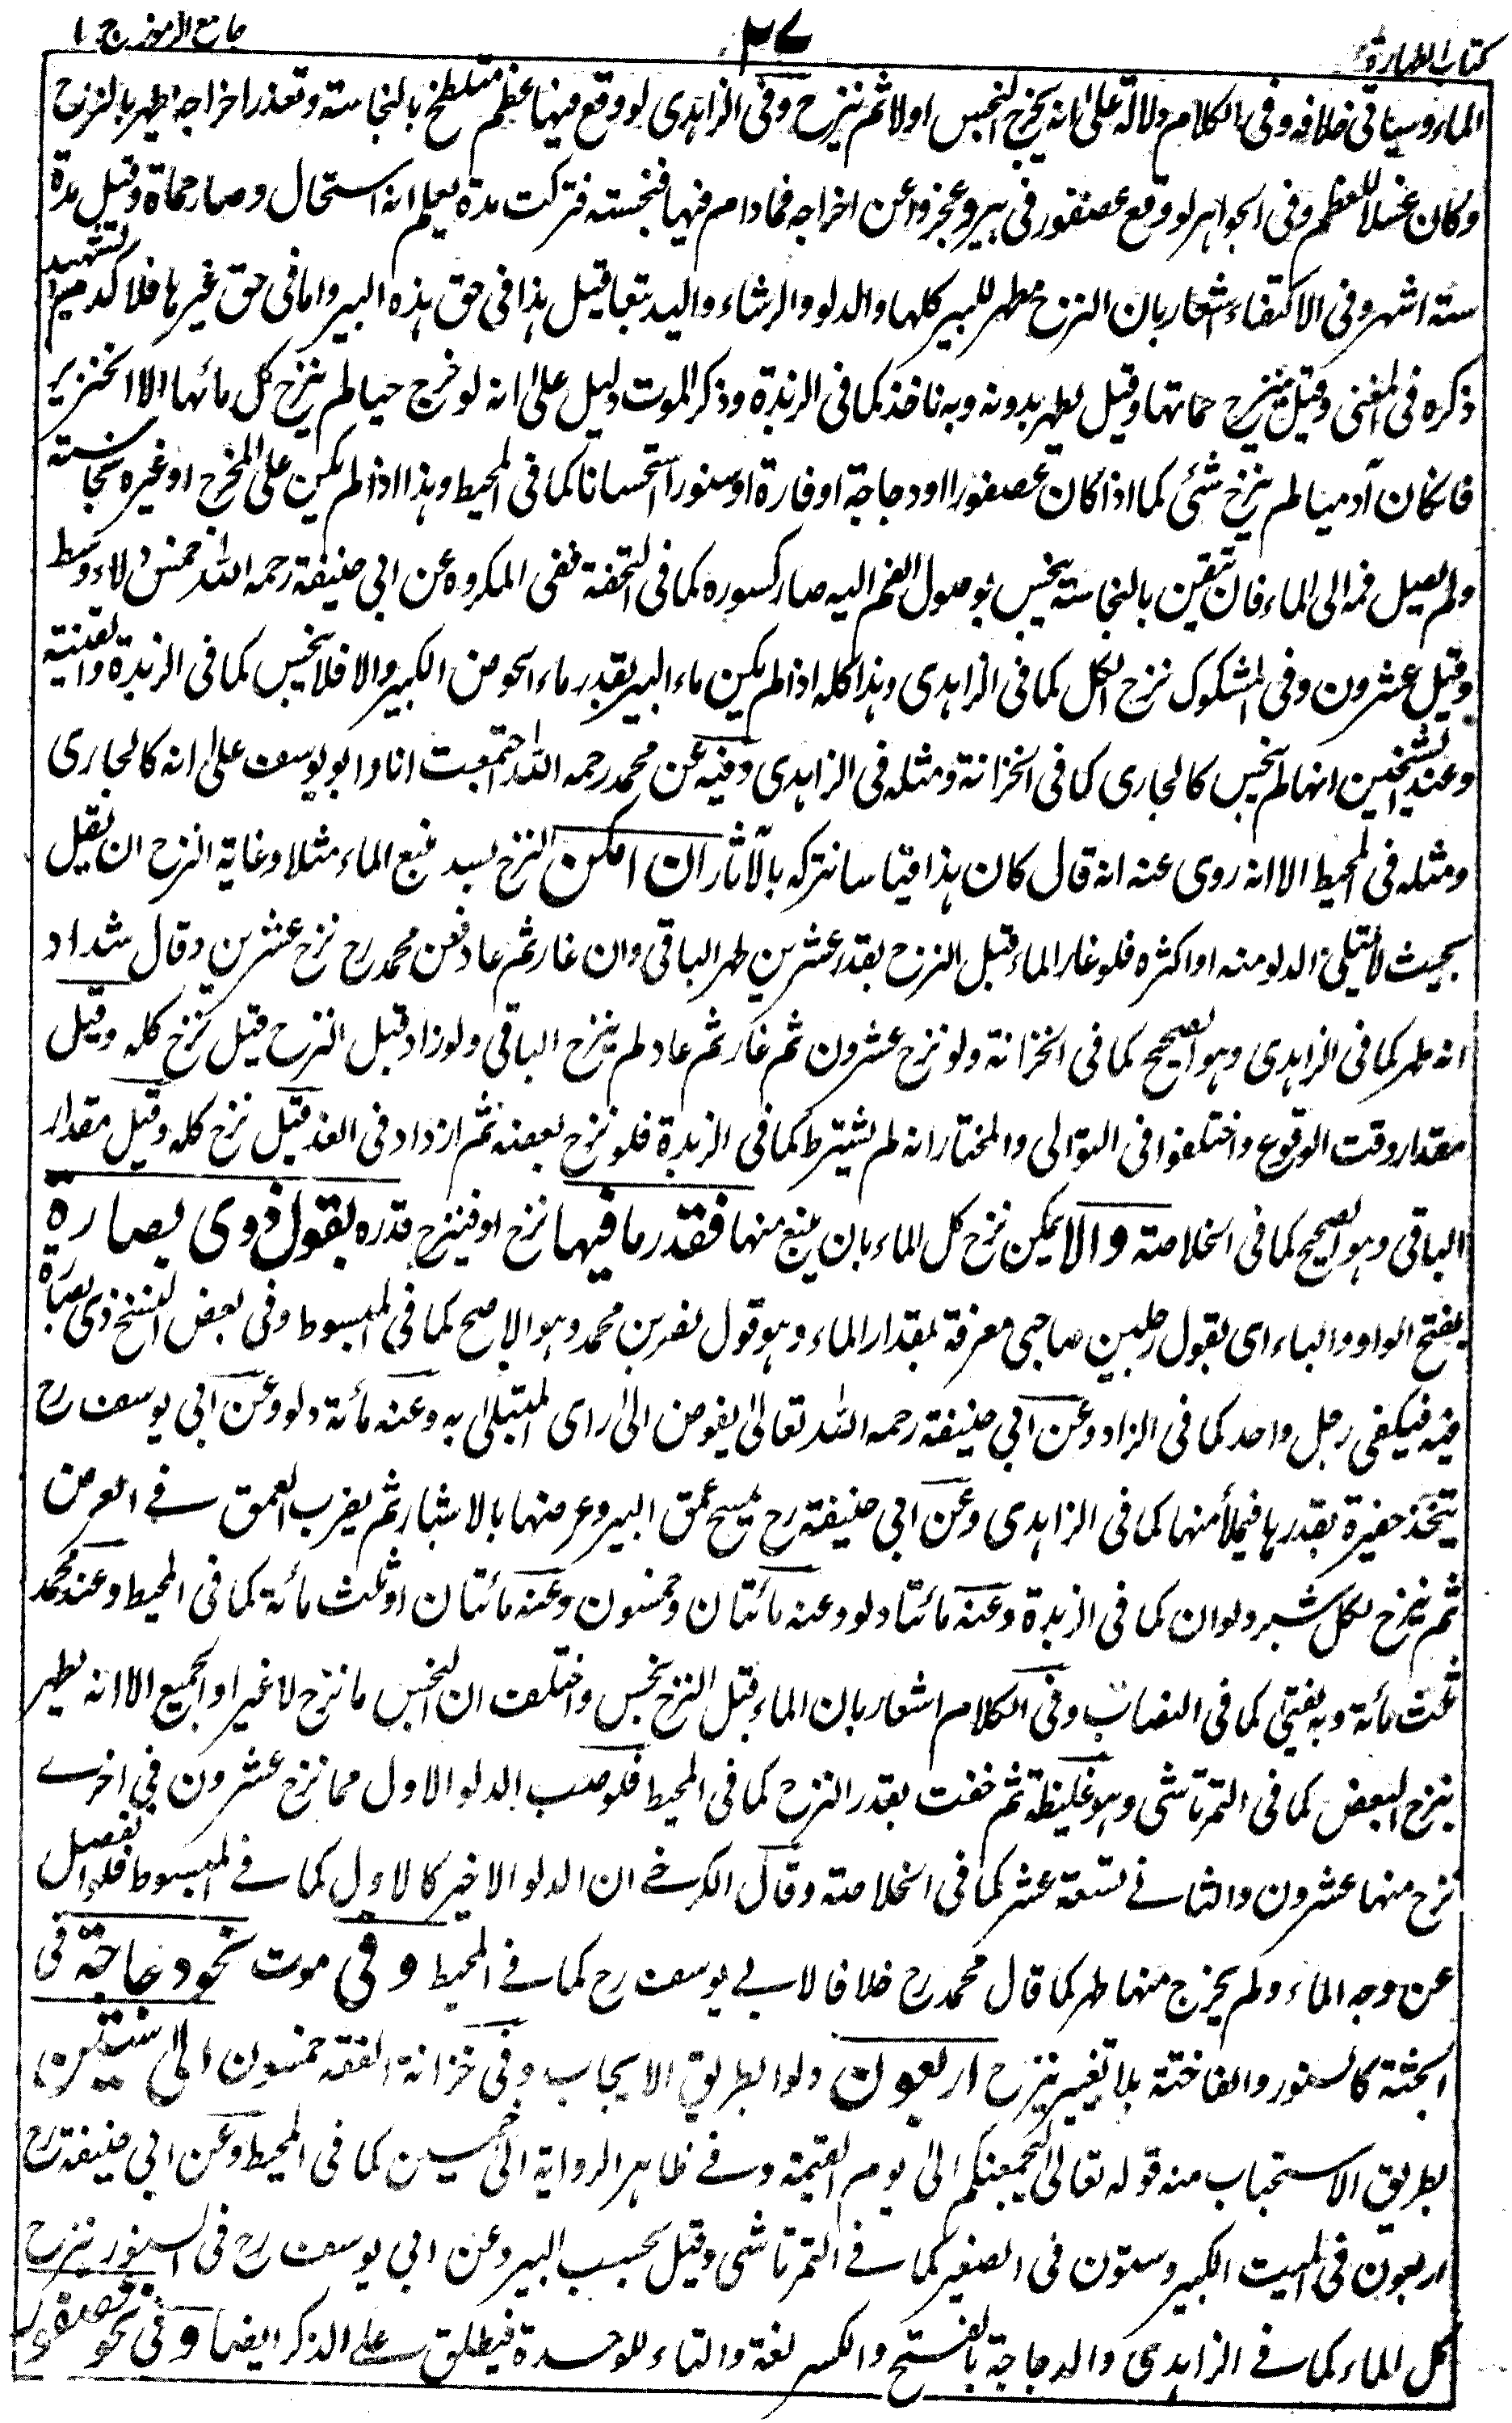 كتاب الطهارة ٣٧ جامع الرموز ج ١
الماء وسياتى خلافه وفى الكلام دلالة على انه يخرج النجس اولا ثم ينزح وفى الزاهدى لو وقع فيها عظم متلطخ بالنجاسة وتعذر اخراجه يطهر بالنزح
وكان غسلا للعظم وفى الجواهر لو وقع عصفور فى بير وعجزوا عن اخراجه فما دام فيها فنجسته فتركت مدة يعلم انه استحال وصار حماة وقيل مدة
ستة اشهر وفى الاكتفاء اشعار بان النزح مطهر للبير كلها والدلو والرشاء واليد تبعا قيل هذا فى حق هذه البير واما فى حق غيرها فلا كدم الشهيد
ذكره فى المغنى وقيل ينزح حماتها وقيل يطهر بدونه وبه ناخذ كما فى الزبدة وذكر الموت دليل على انه لو خرج حيا لم ينزح كل مائها الا الخنزير
فانكان آدميا لم ينزح شئ كما اذا كان عصفورا او دجاجة او فارة او سنورا استحسانا كما فى المحيط وهذا اذا لم يكن على المخرج او غيره نجاسة
ولم يصل فمه الى الماء فان تيقن بالنجاسة يخبس بوصول الفم اليه صار كسوره كما فى التحفة ففى المكروه عن ابي حنيفة رحمه الله خمس دلاء وسط
وقيل عشرون وفى المشكوك نزح الكل كما فى الزاهدى وهذا كله اذا لم يكن ماء البير بقدر ماء الحوض الكبير والا فلا ينجس كما فى الزبدة والقنية
وعند الشيخين انها لم ينجس كالجارى كما فى الخزانة ومثله فى الزاهدى وفيه عن محمد رحمه الله اجتمعت انا وابو يوسف على انه كالجارى
ومثله فى المحيط الا انه روى عنه انه قال كان هذا قياسا نتركه بالآثار ان امكن النزح بسد منبع الماء مثلا وغاية النزح ان يقل
بحيث لا يمتلئ الدلو منه او اكثره فلو غار الماء قبل النزح بقدر عشرين طهر الباقى وان غار ثم عاد فعن محمد رح نزح عشرين وقال شداد
انه طهر كما فى الزاهدى وهو الصحيح كما فى الخزانة ولو نزح عشرون ثم غار ثم عاد لم ينزح الباقى ولو زاد قبل النزح قيل نزح كله وقيل
مقدار وقت الوقوع واختلفوا فى التوالى والمختار انه لم يشترط كما فى الزبدة فلو نزح بعضه ثم ازداد فى الغد قيل نزح كله وقيل مقدار
الباقى وهو الصحيح كما فى الخلاصة والا يمكن نزح كل الماء بان ينبع منها فقدر ما فيها نزح او فينزح قدره بقول ذوى بصارة
بفتح الواو والباء اى بقول رجلين صاحبى معرفة بمقدار الماء وهو قول نصر بن محمد وهو الاصح كما فى المبسوط وفى بعض النسخ ذى بصارة
فيه فيكفى رجل واحد كما فى الزاد وعن ابي حنيفة رحمه الله تعالى يفوض الى راى المبتلى به وعنه مائة دلو وعن ابي يوسف رح
يتخذ حفيرة بقدرها فيملأ منها كما فى الزاهدى وعن ابي حنيفة رح يمسح عمق البير وعرضها بالاشبار ثم يضرب العمق فے العرض
ثم ينزح لكل شبر دلوان كما فى الزبدة وعنه مائتا دلو وعنه مائتان وخمسون وعنه مائتان او ثلث مائة كما فى المحيط وعند محمد
ثلث مائة وبه يفتى كما فى النصاب وفى الكلام اشعار بان الماء قبل النزح نجس واختلف ان النجس ما نزح لا غير او الجميع الا انه يطهر
بنزح البعض كما فى التمرتاشى وهو غليظة ثم خفت بقدر النزح كما فى المحيط فلو صب الدلو الاول مما نزح عشرون فى اخرے
نزح منها عشرون والثانے تسعة عشر كما فى الخلاصة وقال الكرخے ان الدلو الاخير كالاول كما فے المبسوط فلو انفصل
عن وجه الماء ولم يخرج منها طهر كما قال محمد رح خلافا لابے يوسف رح كما فے المحيط وفى موت نحو دجاجة فى
الجثة كالسنور والفاختة بلا تغيير ينزح اربعون دلوا بطريق الايجاب وفى خزانة الفقه خمسون الى ستين
بطريق الاستحباب منه قوله تعالى ليجمعنكم الى يوم القيمة وفے ظاهر الرواية الى خمسين كما فى المحيط وعن ابي حنيفة رح
اربعون فى الميت الكبير وستون فى الصغير كما فے التمرتاشى وقيل بحسب البير وعن ابي يوسف رح فى السنور ينزح
كل الماء كما فے الزاهدى والدجاجة بالفتح والكسر لغة والتاء للوحدة فيطلق علے الذكر ايضا وفى نحو عصفور